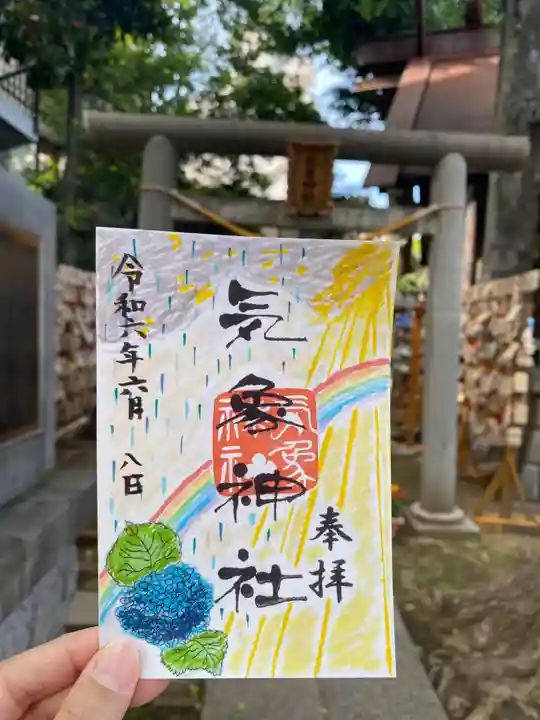 奉拝
気象神社
気象神社
令和六年六月八日